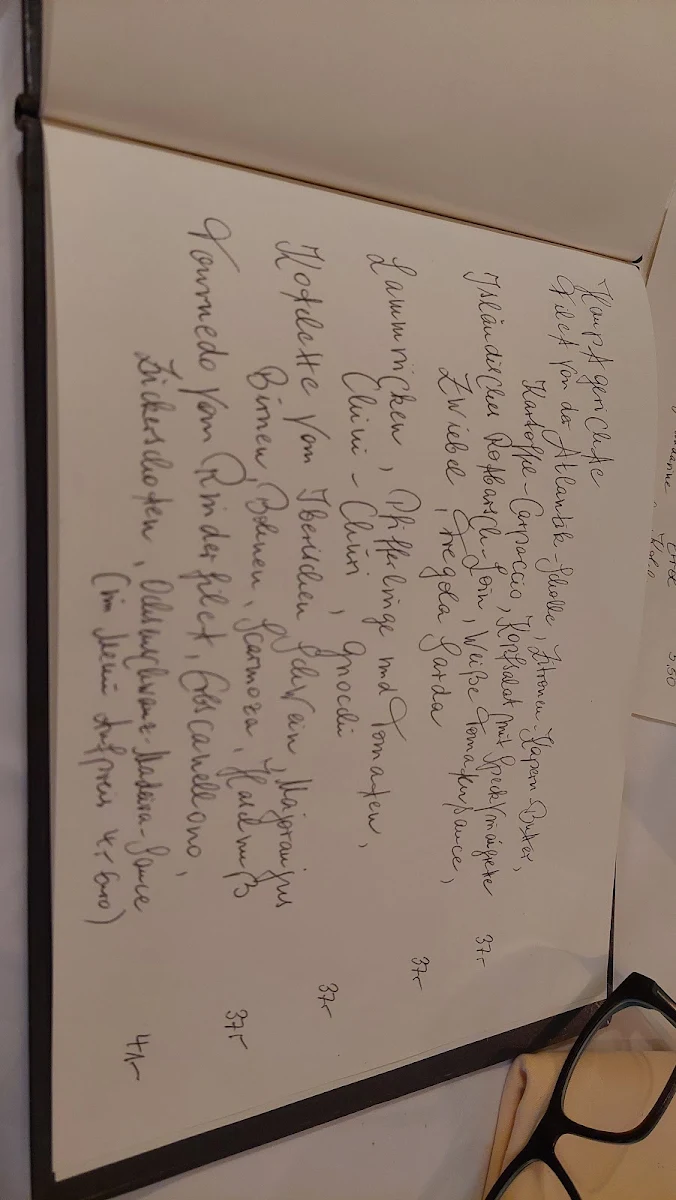 Hauptgerichte
Filet von der Atlantik-Scholle, Zitronen-Kapern-Butter,
Kartoffel-Carpaccio, Kopfsalat mit Speckvinaigrette
37,-
Isländisches Rotbarsch-Loin, Weiße Tomatensauce,
Zwiebel, Fregola Sarda
37,-
Lammrücken, Pfifferlinge und Tomaten,
Chimi-Churi, Gnocchi
37,-
Kotelette vom Iberischen Schwein, Majoranjus
Birnen, Bohnen, Scarmoza, Haselnuß
37,-
Tournedo vom Rinderfilet, Erbscanellono,
Zuckerschoten, Ochsenschwanz-Madeira-Sauce
(im Menü Aufpreis 4,- Euro)
41,-
5.50